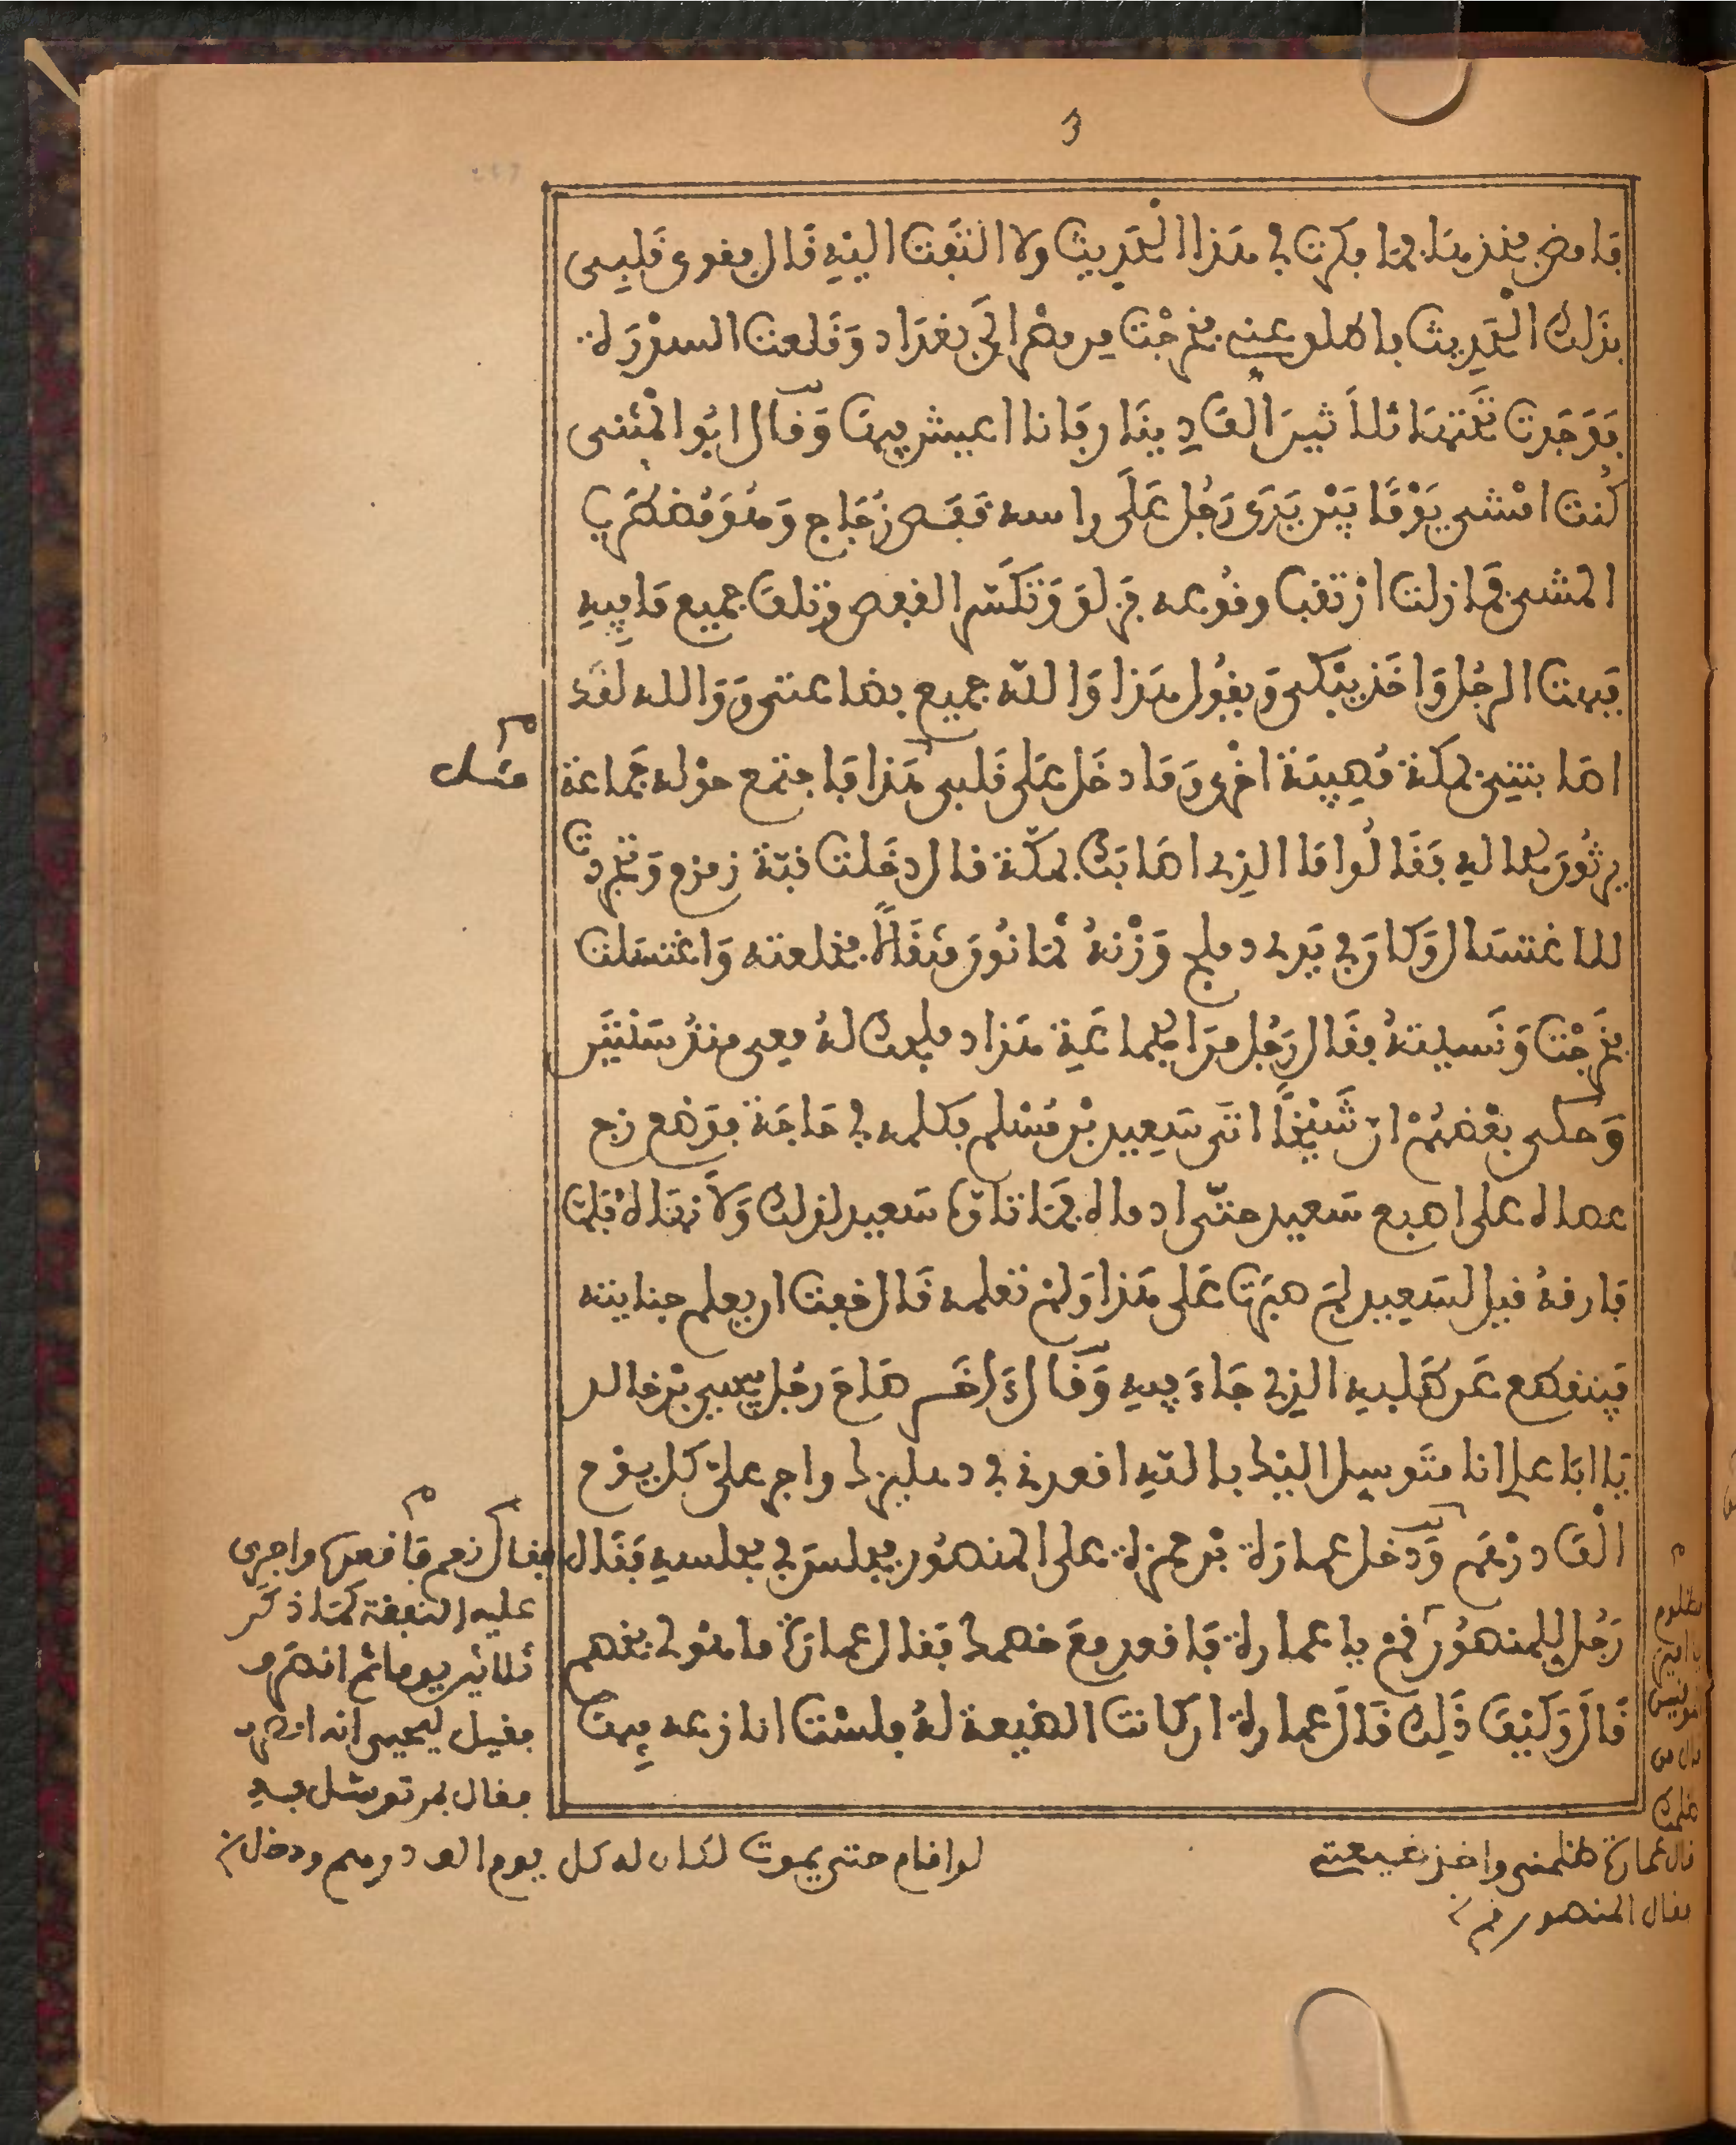 3
فامض بنذرمنا فما فكرت في هذا الحديث ولا التفت اليه قال فقوى قلبى
بذلك الحديث باهلو عينه فخرجت من مصر الى بغداد وقلعت السدرة
فوجدت تحتها ثلاثين الف دينار فانا اعيش فيها وقال ابو المثنى
كنت امشي يوما بين يدي رجل على راسه قفص زجاج وهو مضطرب
المشي فما زلت ارتقب وقوعه فزلق وتكسر القفص وتلف جميع ما فيه
فبهت الرجل واخذ يبكى ويقول هذا والله جميع بضاعتى ووالله لقد
اصابتني بمكة مصيبة اخرى وما دخل على قلبى هذا فاجتمع حوله جماعة
مثل
يرثون لحاله فقالوا ما الذي اصابك بمكة قال دخلت قبة زمزم وتجردت
للاغتسال وكان في يدي دملج وزنه ثمانون مثقالا فخلعته واغتسلت
فخرجت ونسيته فقال رجل من الجماعة هذا دملجك له معى منذ سنتين
وحكى بعضهم ان شيخا اتى سعيد بن مسلم بكلمه في حاجة فوضع زج
عصاه على اصبع سعيد حتى ادماه فما تاوه سعيد لذلك ولا نهاه فلما
فارقه قيل لسعيد لم صبرت على هذا ولم تعلمه قال خفت ان يعلم جنايته
فينقطع عن طلبه الذي جاء فيه وقال اخر صاح رجل يحيى بن خالد
يا ابا علي انا متوسل اليك بالله اقعدني في دهليزك واجر علي كل يوم
الف درهم ودخل عمارة بن حمزة على المنصور فجلس في مجلسه فقال
رجل للمنصور قم يا عمارة فاقعد مع خصمك فقال عمارة ما هو لي بخصم
قال وكيف ذلك قال عمارة ان كانت الضيعة له فلست انازعه فيها
فقال نعم فاقعده واجرى
عليه النفقة كما ذكر
ثلاثين يوما ثم انصرف
فقيل ليحيى انه انصرف
فقال من توسل به
لو اقام حتى يموت لكان له كل يوم الف درهم ودخل
مظلوم
ظلمك
قال عمارة ظلمنى واخذ ضيعتى
فقال المنصور قم